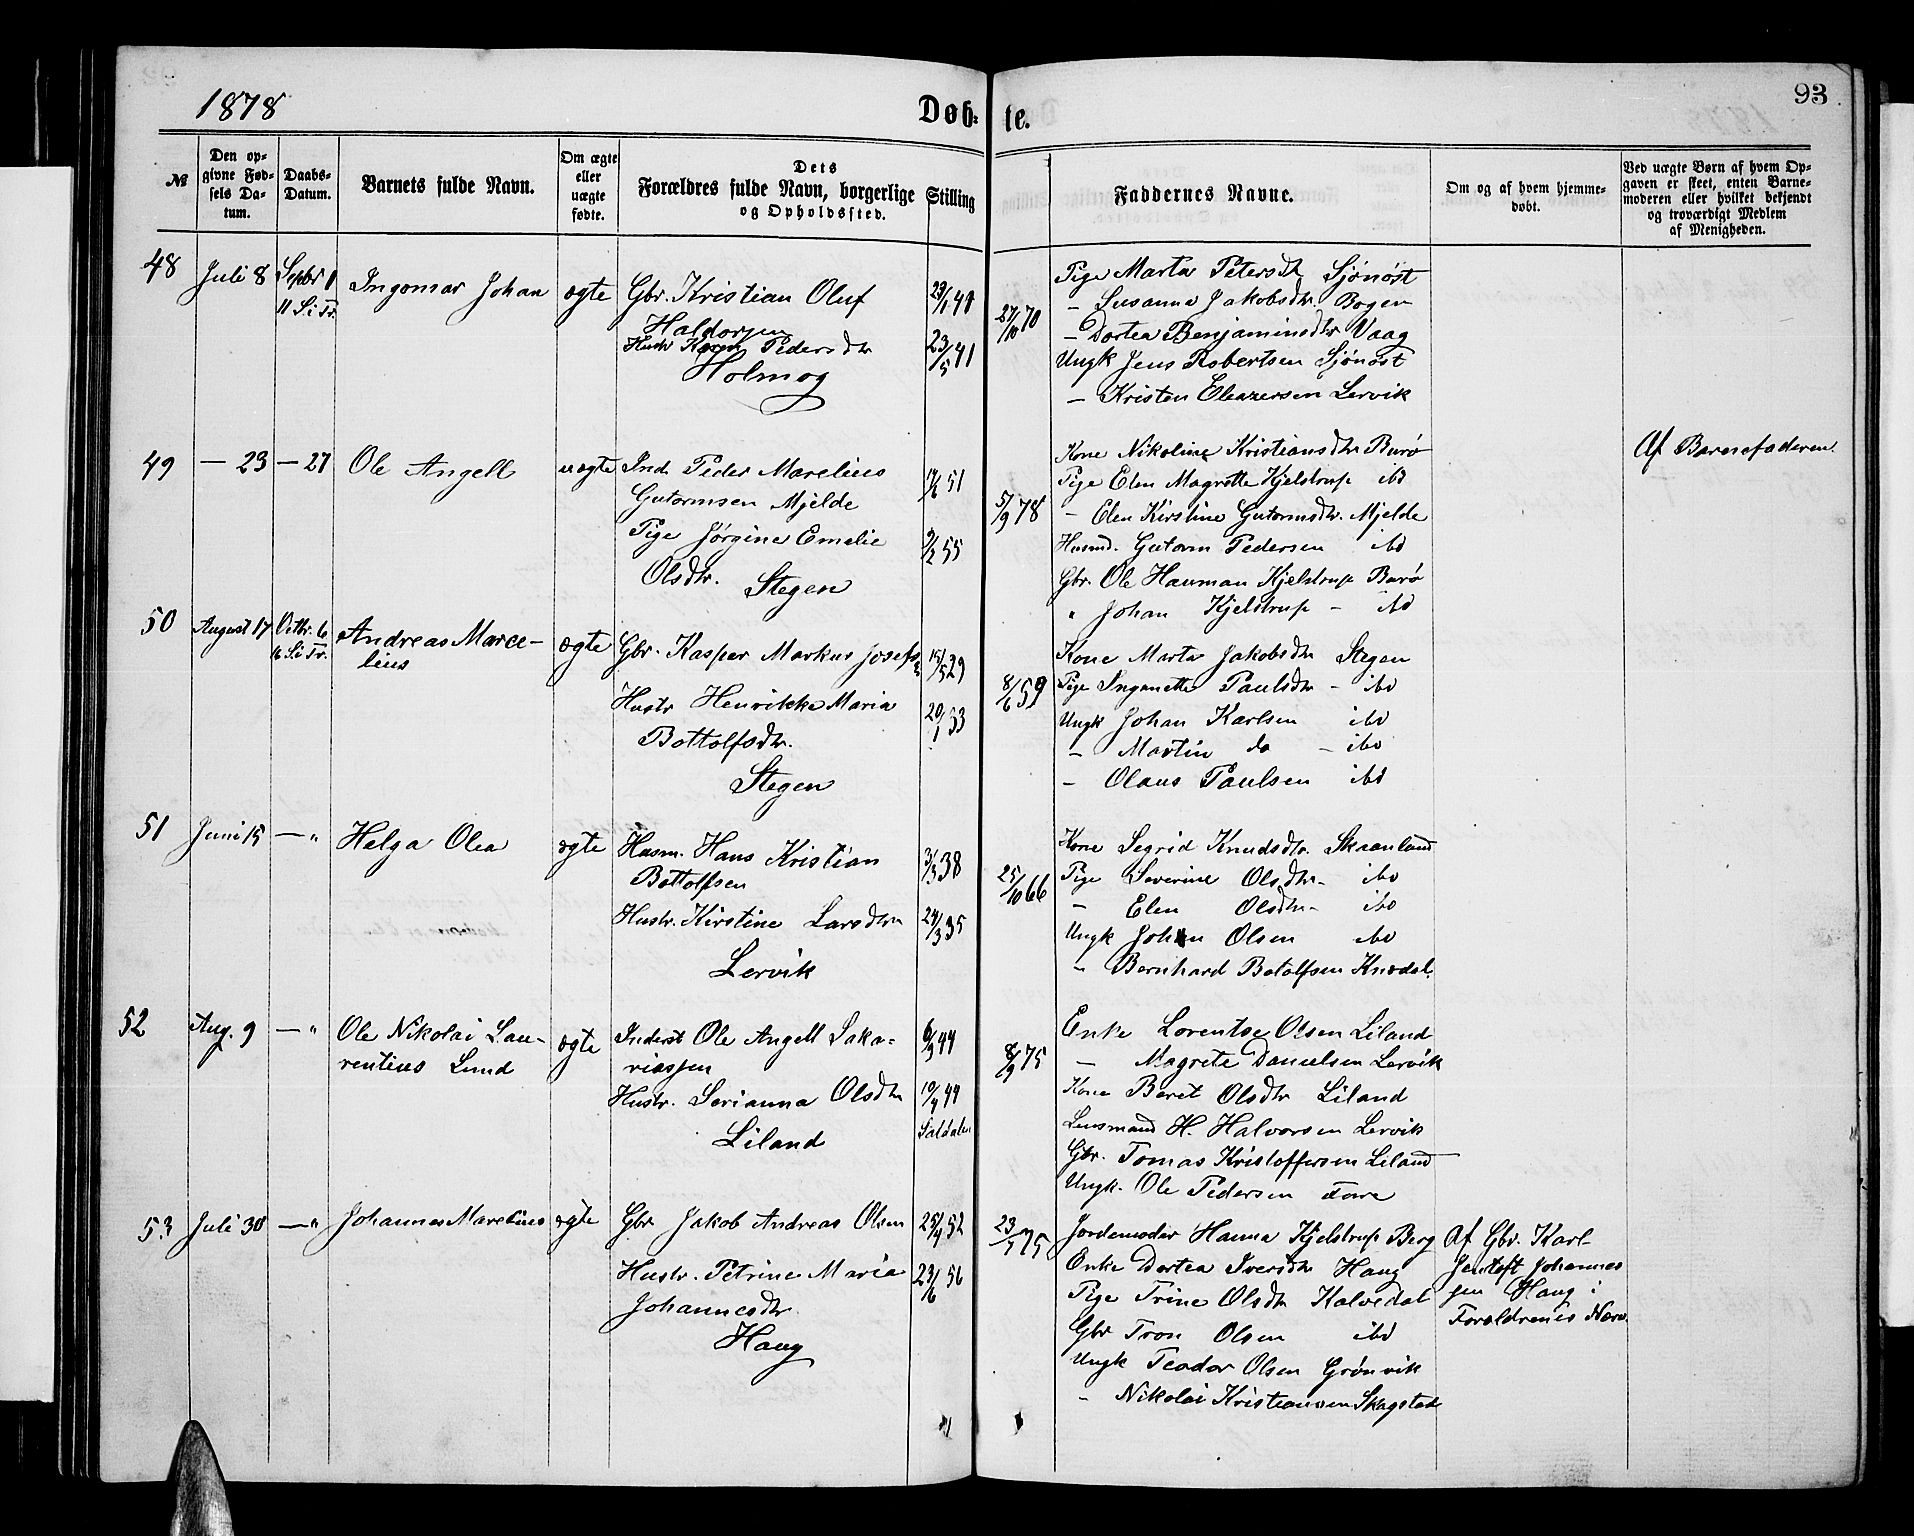 1878 Døb- te. 93
№
Den opgivne Fødsels Datum.
Daabs-Datum.
Barnets fulde Navn.
Om ægte eller uægte fødte.
Dets Forældres fulde Navn, borgerlige Stilling og Opholdssted.
Faddernes Navne.
Om og af hvem hjemmedøbt.
Ved uægte Børn af hvem Opgaven er skeet, enten Barnemoderen eller hvilket bekjendt og troværdigt Medlem af Menigheden.
48 Juli 8 Septbr 1 Ingomar Johan ægte Gbr. Kristian Oluf
11 S. i Tr.
Haldorsen
Hustr Karen Pedersdtr 23/5 41
Holmog
27/10 70
Pige Marta Petersdtr Sjønøst
– Susanna Jakobsdtr. Bogen
– Dortea Benjaminsdtr Vaag
Ungk Jens Robertsen Sjønøst
– Kristen Eleazersen Lervik
49 – 23 – 27 Ole Angell uægte Ind. Peder Marelius
Gutormsen Mjelde
Pige Jørgine Emelie 9/2 55
Olsdtr. Stegen
5/9 78
Kone Nikoline Kristiansdtr Burø
Pige Elen Magrette Kjelstrup ibd
– Elen Kirstine Gutormsdtr. Mjelde
Husmd. Gutorm Pedersen ibd
Gbr. Ole Hauman Kjelstrup Burø
" Johan Kjelstrup – ibd
Af Barnefaderen
50 August 17 Octbr. 6 Andreas Marce- ægte Gbr. Kasper Markus Josefs. 15/5 29
16 S. i Tr. lius
Hustr Henrikke Maria 20/1 33
Bottolfsdtr.
Stegen
8/6 59
Kone Marta Jakobsdtr Stegen
Pige Inganette Paulsdtr – ibd
Ungk Johan Karlsen ibd
– Martin do – ibd
– Olaus Paulsen ibd
51 Juni 15 – " Helga Olea ægte Husm. Hans Kristian 3/3 38
Bottolfsen
Hustr. Kirstine Larsdtr 24/3 35
Lervik
25/10 66
Kone Segrid Knudsdtr. Skaanland
Pige Severine Olsdtr – ibd
– Elen Olsdtr – ibd
Ungk Johan Olsen ibd
– Bernhard Botolfsen Knædal.
52 Aug. 9 – " Ole Nikolai Lau- ægte Inderst Ole Angell Saka- 6/3 44
rentius Lund riassen
Hustr. Serianna Olsdtr 10/4 44
Saldalen
Liland
8/9 75
Enke Lorentse Olsen Liland
– Magrete Danielsen Lervik
Kone Beret Olsdtr Liland
Lensmand H. Halvorsen Lervik
Gbr. Tomas Kristoffersen Liland
Ungk. Ole Pedersen Fore
53 Juli 30 – " Johannes Marelius ægte Gbr Jakob Andreas Olsen 25/4 52
Hustr. Petrine Maria 23/6 56
Johannesdtr.
Haug
23/7 75
Jordemoder Hanna Kjelstrup Berg
Enke Dortea Iversdtr Haug
Pige Trine Olsdtr Kalvedal
Gbr Tron Olsen ibd
Ungk Teodor Olsen Grønvik
– Nikolai Kristiansen Skagstad
Af Gbr. Karl
Jentoft Johannes
sen Haug i
Forældrenes Nærv.